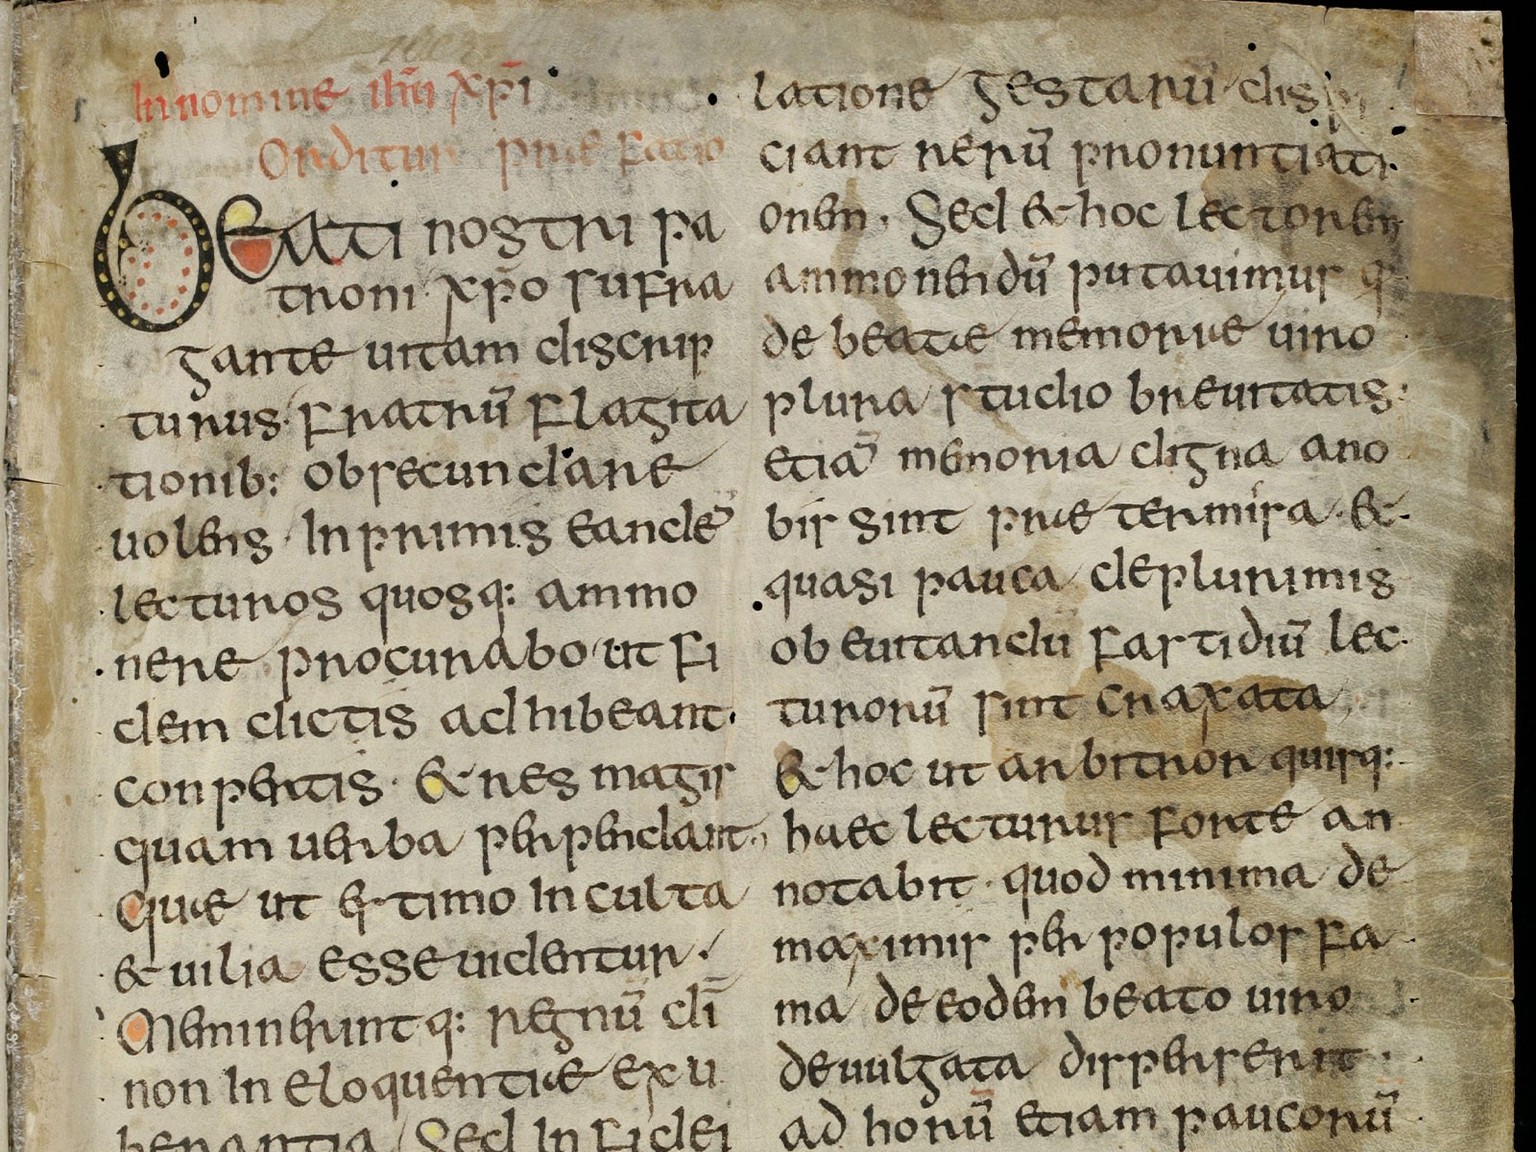 In nomine ihū xp̄i
Orditur praefatio
Beati nostri pa
troni xp̄o sufra
gante uitam discrip
turus fratrū flagita
tionib: obsecundare
uolens In primis eandē
lecturos quosq: ammo
nere procurabo ut fi
dem dictis adhibeant
conpertis · & res magis
quam uerba perpendant,
Quae ut estimo In culta
& uilia esse uidentur ·
Meminerint q: regnū dī
non In eloquentiae exu
berantia Sed In fidei
latione gestarū
ciant rerū pronuntiati
onem · Sed & hoc lectorem
ammonendū putauimus
de beatae memoriae uiro
plura studio breuitatis
etiā memoria digna a no
bis sint praetermisa · &
quasi pauca de plurimis
ob euitandū fastidiū lec
turorū sint craxata
& hoc ut arbitror quisq:
haec lecturus fonte an
notabit · quod minima de
maximis per populos fa
ma de eodem beato uiro
deuulgata disperserit ·
ad horū etiam paucorū